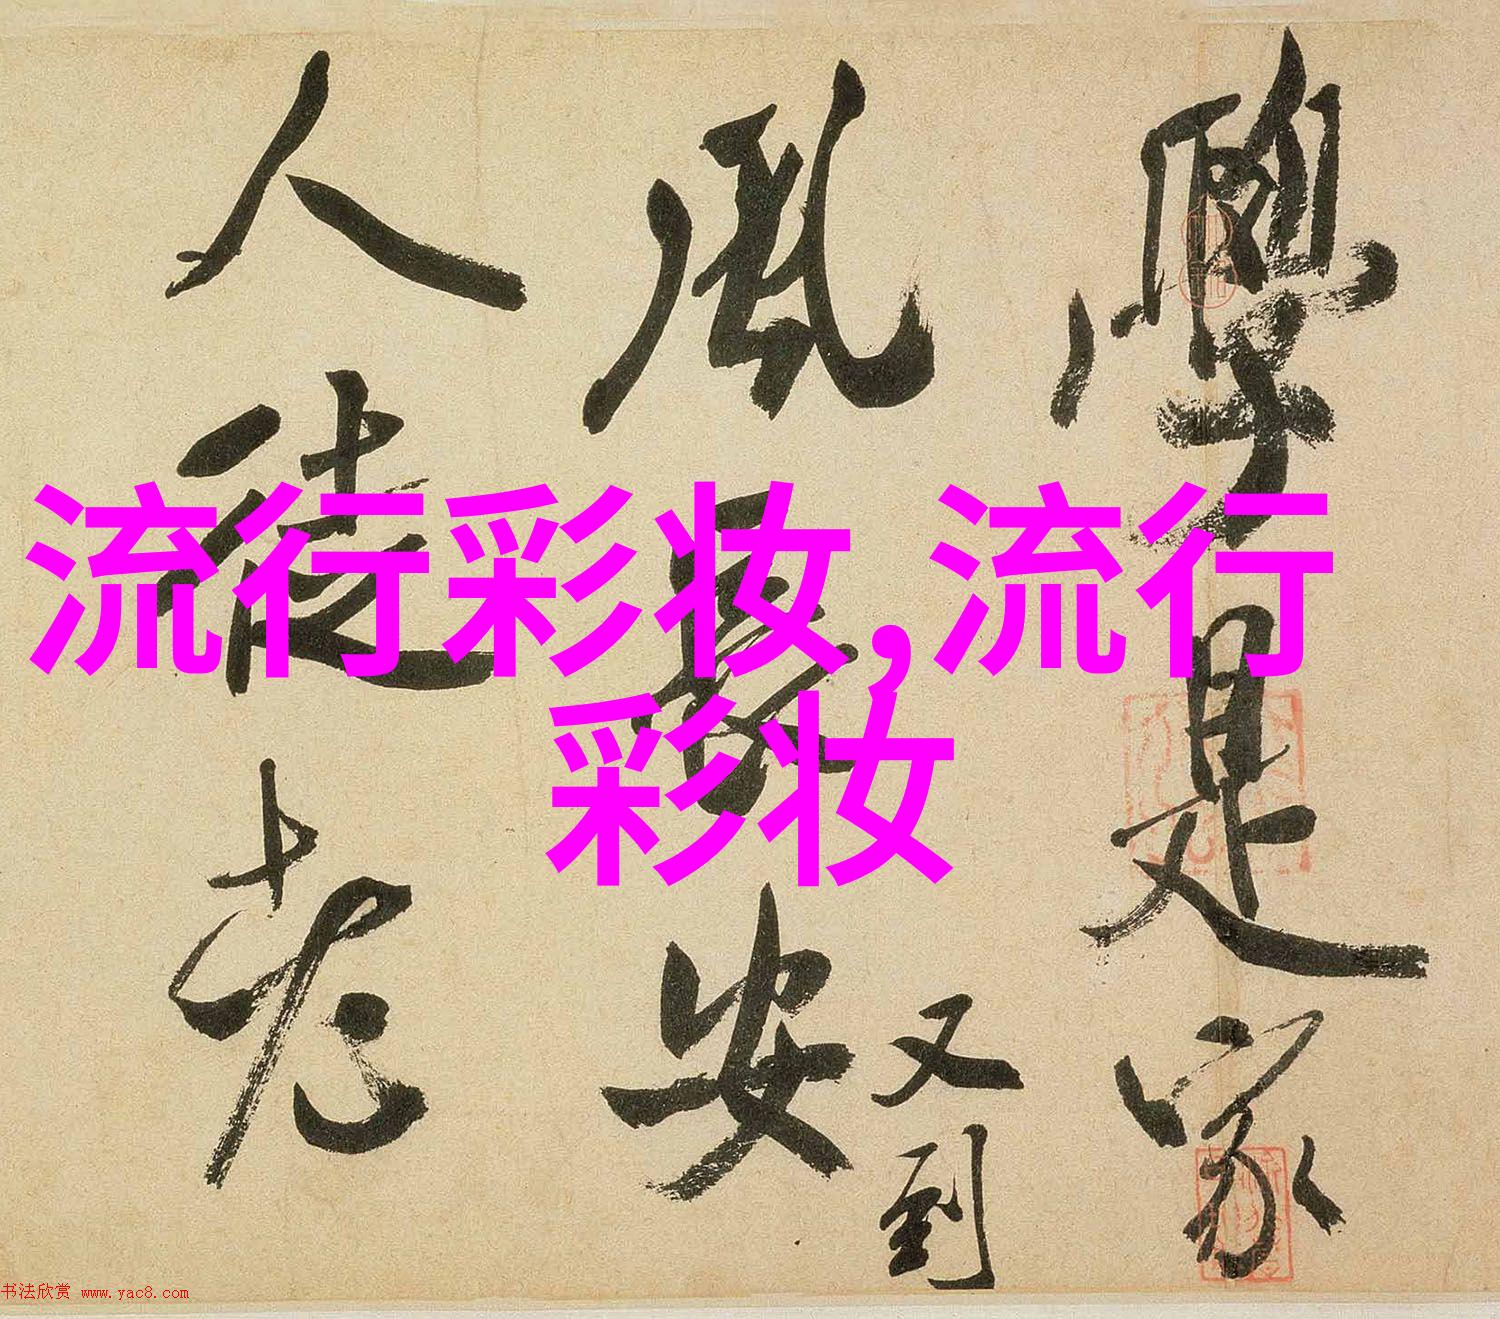 學是家
風長安
又到
人徒老
流行彩妆,流行
彩妆
书法欣赏 www.yac8.com